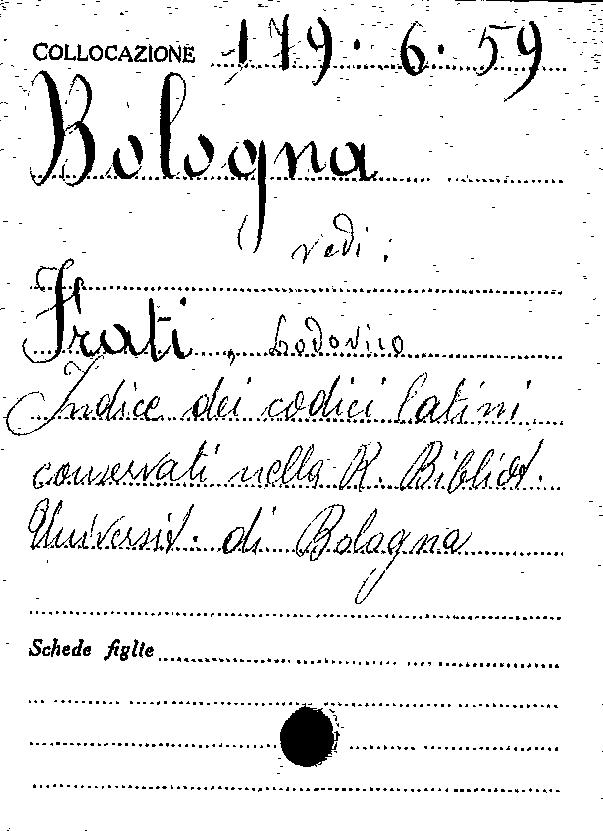 COLLOCAZIONE 179.6.59
Bologna
vedi:
Frati, Lodovico
Indice dei codici latini
conservati nella R. Bibliot.
Universit. di Bologna
Schede figlie